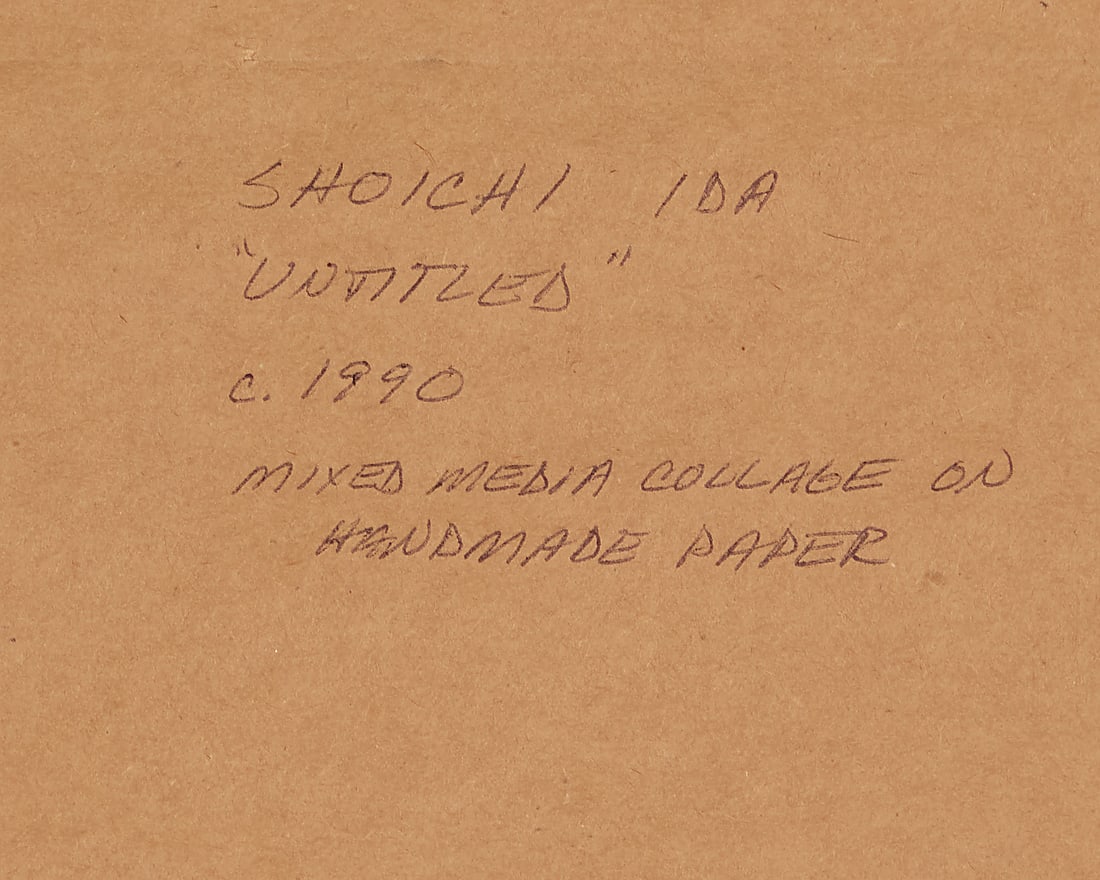 SHOICHI IDA
"UNTITLED"
c. 1990
MIXED MEDIA COLLAGE ON
HANDMADE PAPER